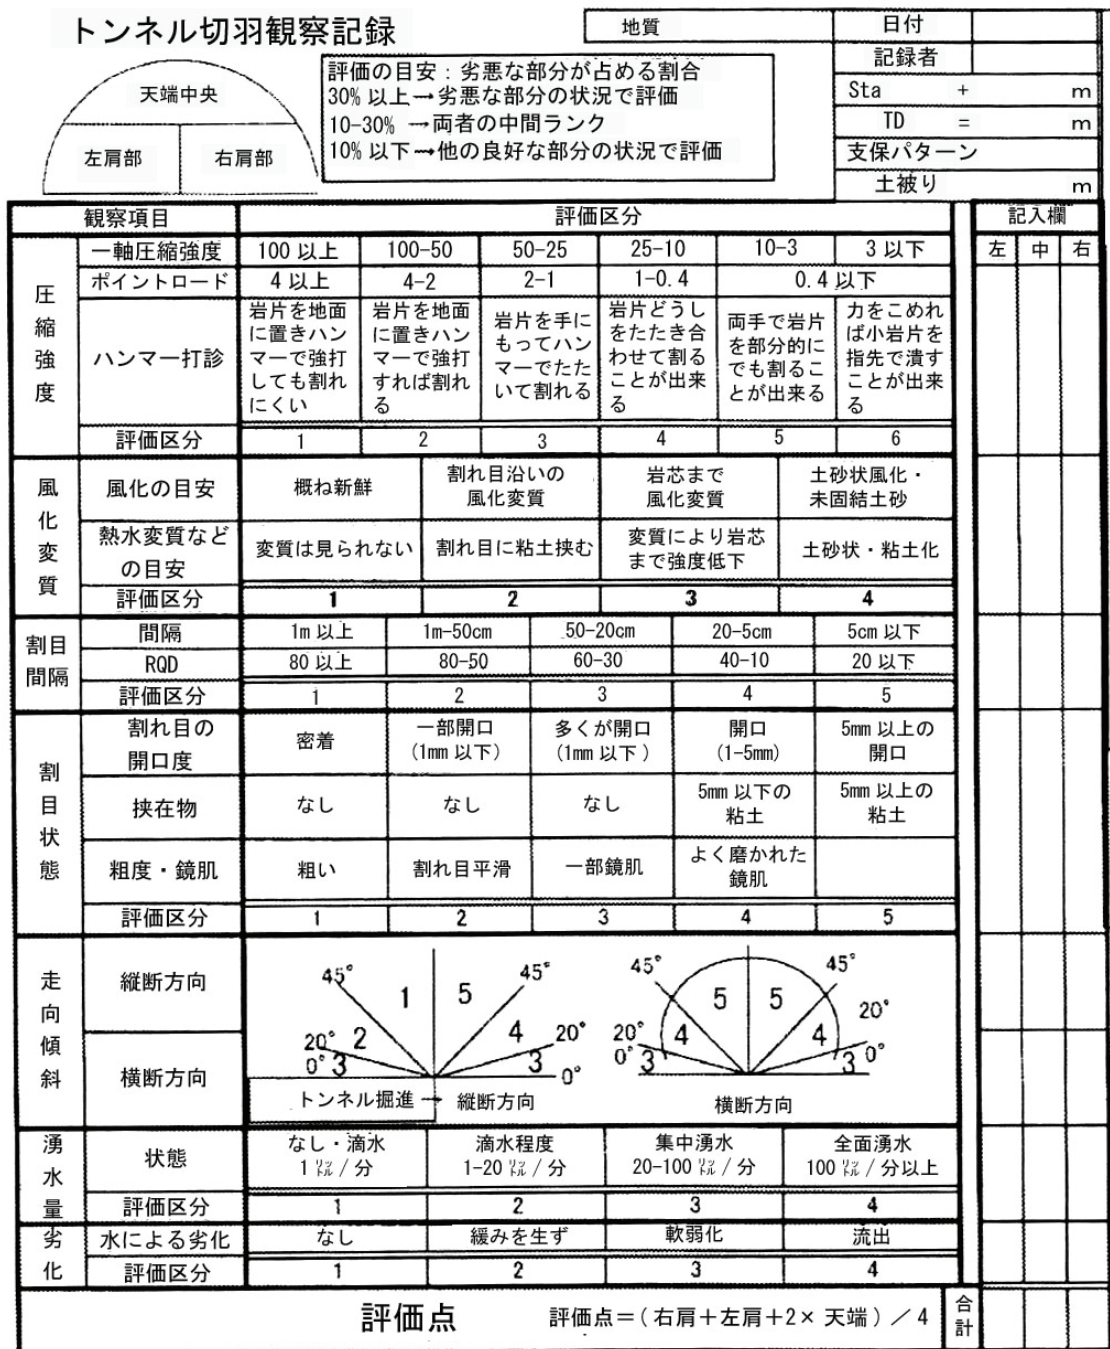 トンネル切羽観察記録
地質
日付
記録者
Sta + m
TD = m
支保パターン
土被り m
天端中央
左肩部 右肩部
評価の目安：劣悪な部分が占める割合
30% 以上→劣悪な部分の状況で評価
10-30% →両者の中間ランク
10% 以下→他の良好な部分の状況で評価
観察項目 評価区分 記入欄
左 中 右
圧縮強度
一軸圧縮強度 100 以上 100-50 50-25 25-10 10-3 3 以下
ポイントロード 4 以上 4-2 2-1 1-0.4 0.4 以下
ハンマー打診
岩片を地面
に置きハン
マーで強打
しても割れ
にくい
岩片を地面
に置きハン
マーで強打
すれば割れ
る
岩片を手に
もってハン
マーでたた
いて割れる
岩片どうし
をたたき合
わせて割る
ことが出来
る
両手で岩片
を部分的に
でも割るこ
とが出来る
力をこめれ
ば小岩片を
指先で潰す
ことが出来
る
評価区分 1 2 3 4 5 6
風化変質
風化の目安
概ね新鮮
割れ目沿いの
風化変質
岩芯まで
風化変質
土砂状風化・
未固結土砂
熱水変質など
の目安
変質は見られない
割れ目に粘土挟む
変質により岩芯
まで強度低下
土砂状・粘土化
評価区分 1 2 3 4
割目
間隔
間隔 1m 以上 1m-50cm 50-20cm 20-5cm 5cm 以下
RQD 80 以上 80-50 60-30 40-10 20 以下
評価区分 1 2 3 4 5
割目状態
割れ目の
開口度
密着
一部開口
(1mm 以下)
多くが開口
(1mm 以下)
開口
(1-5mm)
5mm 以上の
開口
挟在物
なし
なし
なし
5mm 以下の
粘土
5mm 以上の
粘土
粗度・鏡肌
粗い
割れ目平滑
一部鏡肌
よく磨かれた
鏡肌
評価区分 1 2 3 4 5
走向傾斜
縦断方向
横断方向
45° 1 5 45°
20° 2 4 20°
0° 3 3 0°
トンネル掘進 → 縦断方向
45° 5 5 45°
20° 4 4 20°
0° 3 3 0°
横断方向
湧水量
状態
なし・滴水
1 リットル / 分
滴水程度
1-20 リットル / 分
集中湧水
20-100 リットル / 分
全面湧水
100 リットル / 分以上
評価区分 1 2 3 4
劣化
水による劣化 なし 緩みを生ず 軟弱化 流出
評価区分 1 2 3 4
評価点 評価点＝( 右肩＋左肩＋2× 天端 ) ／ 4 合計